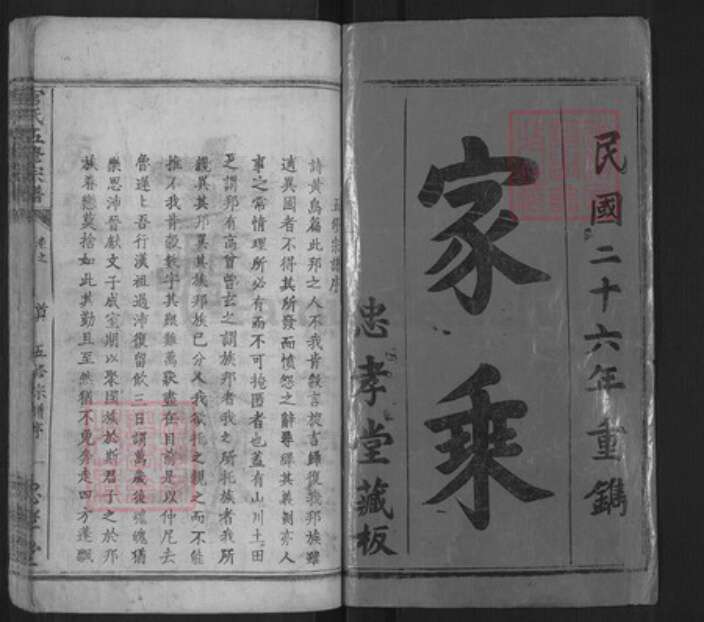 民國二十六年重鐫
家乘
忠孝堂藏板
五修宗譜序
詩黃鳥篇此邦之人不我肯穀言旋言歸復我邦族雖
適異國者不得其所發而憤怨之辭尋繹其義則亦人
事之常情理所必有而不可掩匿者也蓋有山川土田
之謂邦有高曾曾玄之謂族邦者我之所托族者我所
親異其邦異其族邦族已分人我欲托之親之而不能
推不我肯穀數字其艱難萬狀盡在目前是以仲尼去
魯遲上吾行漢祖過沛復留飲三日謂萬歲後魂魄猶
樂思沛晉獻文子成室期以聚國族於斯君子之於邦
族著戀莫捨如此其勤且至然猶不免奔走四方蓬飄
氏五修宗譜
卷之
首
五修宗譜序
一
忠孝堂